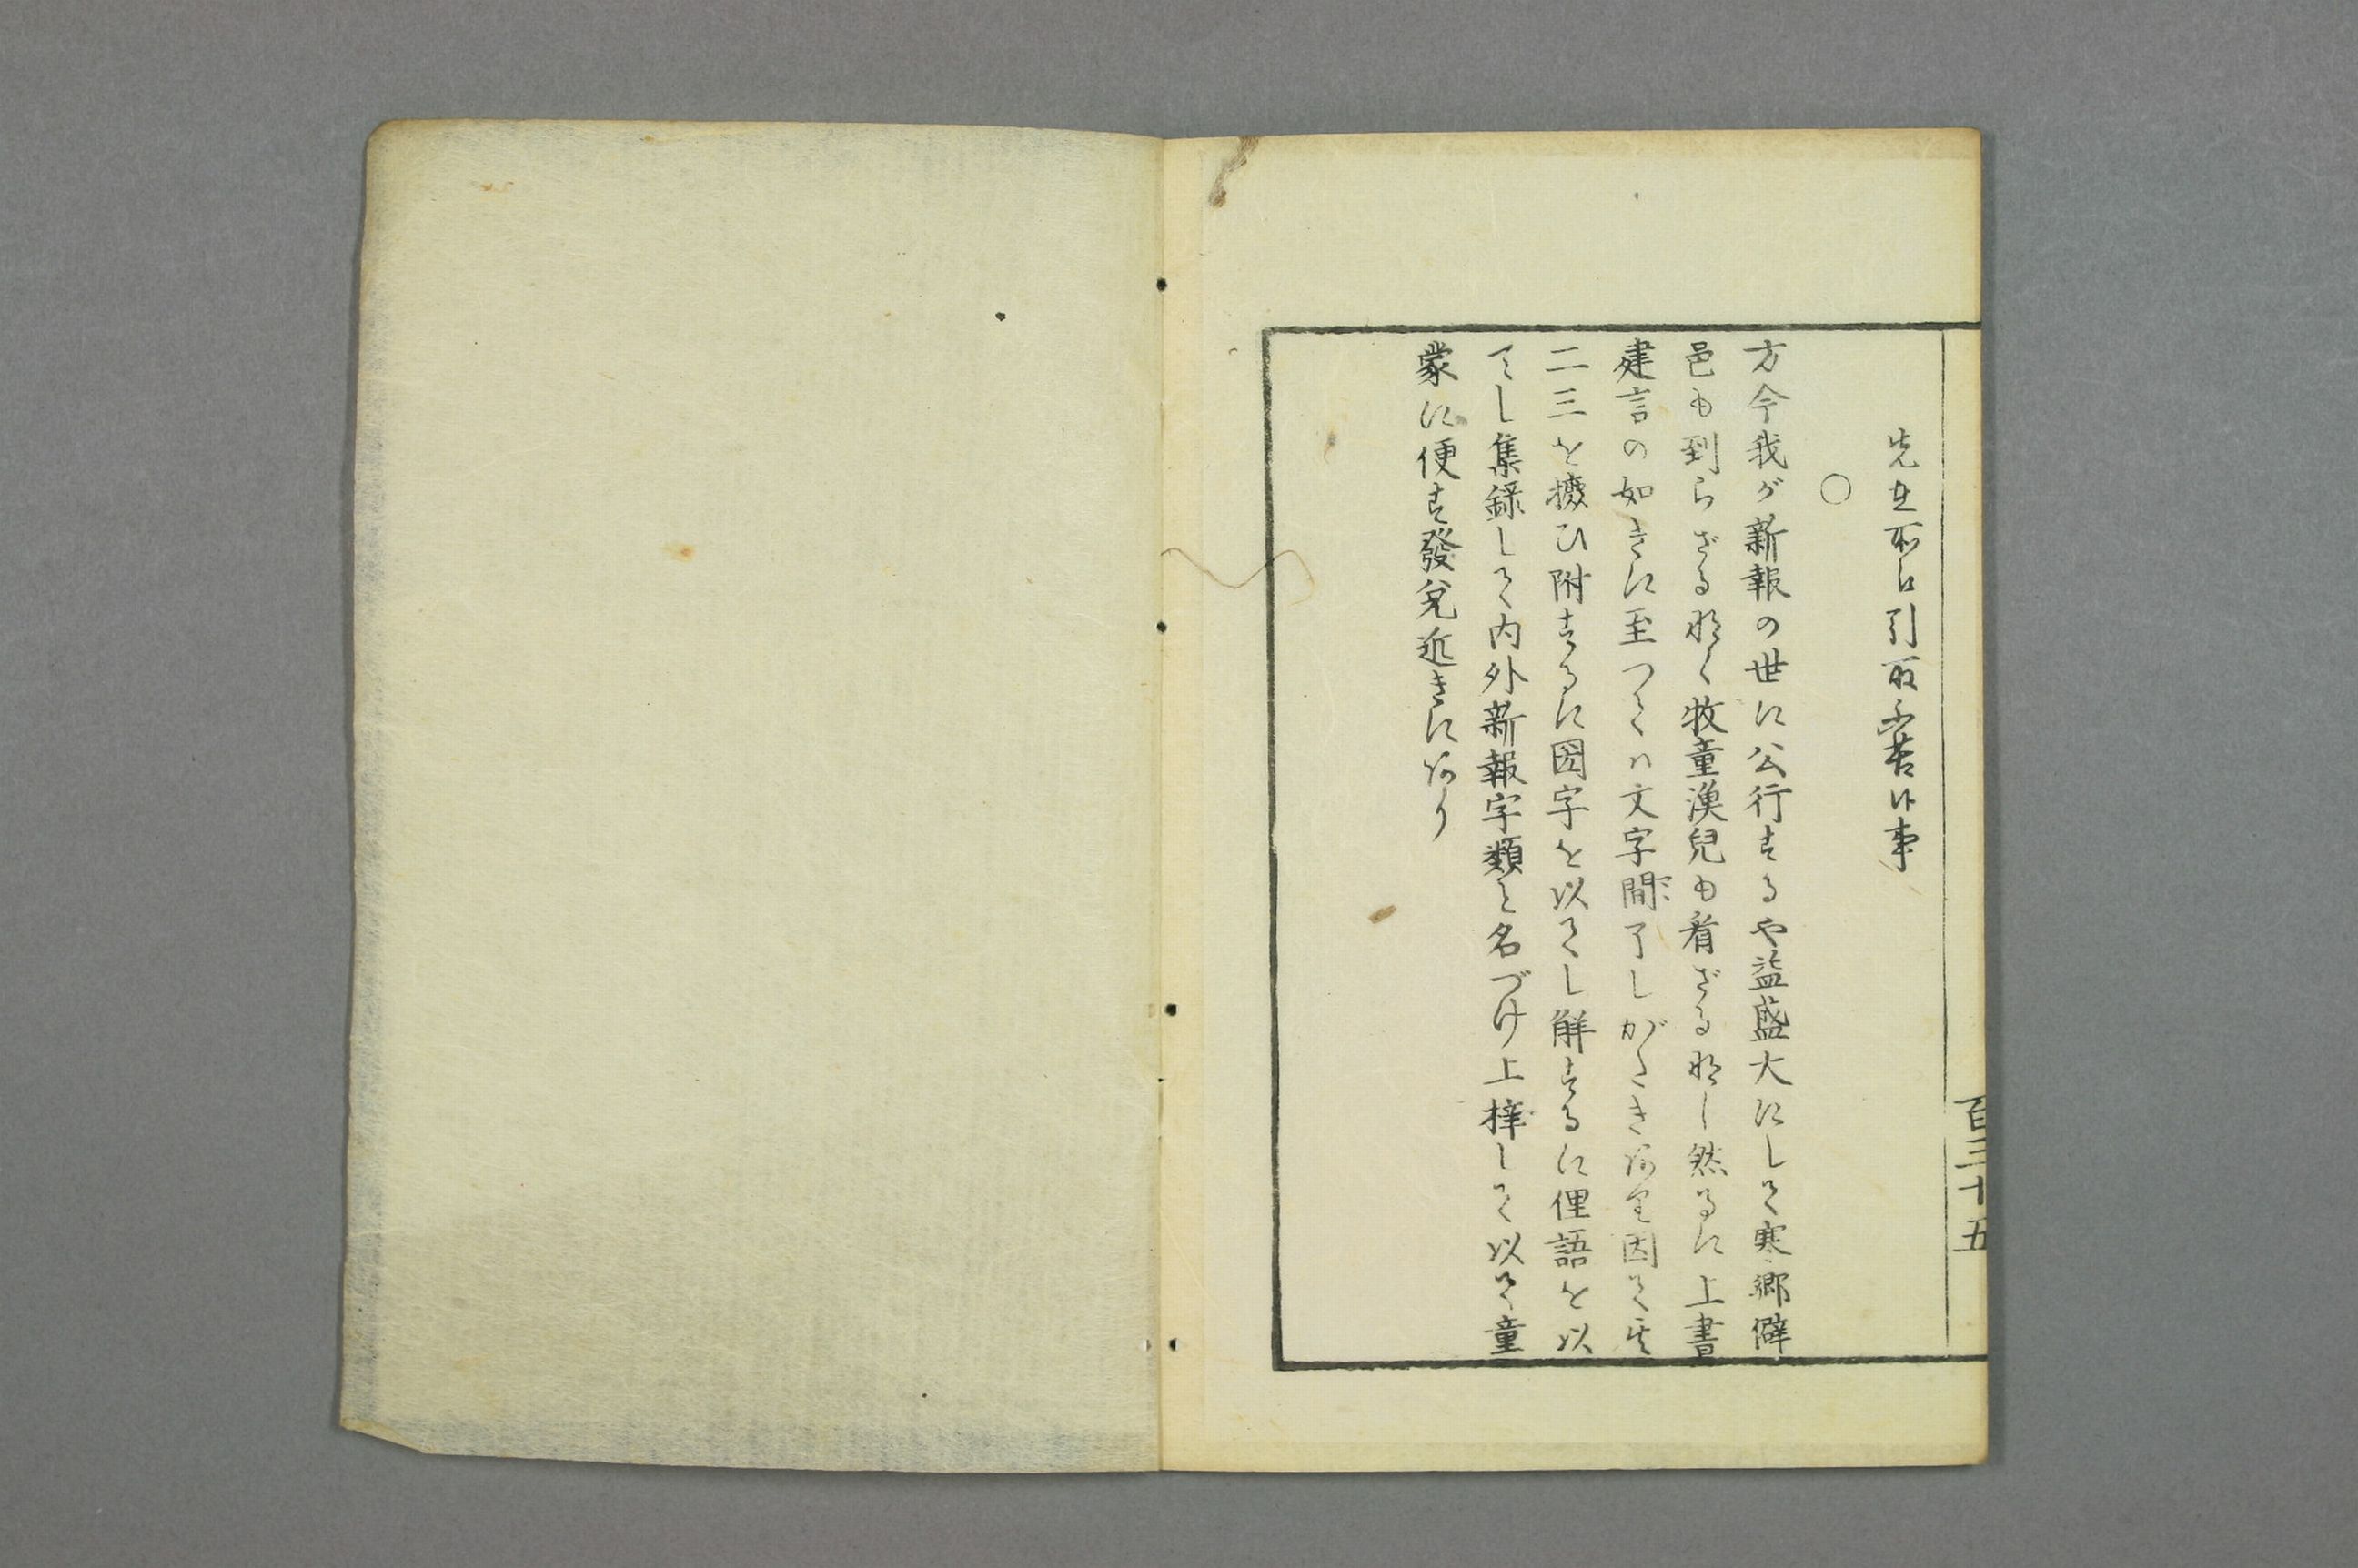 先生所に引取不苦候事
○
方今我が新報の世に公行するや益盛大にして寒郷僻
邑も到らざる那く牧童漁兒も看ざる那し然るに上書
建言の如きに至つてハ文字間了しがたきあり因て其
二三を摭ひ附するに国字を以てし解するに俚語を以
てし集録して内外新報字類と名づけ上梓して以て童
蒙に便す發兌近きにあり
百三十五